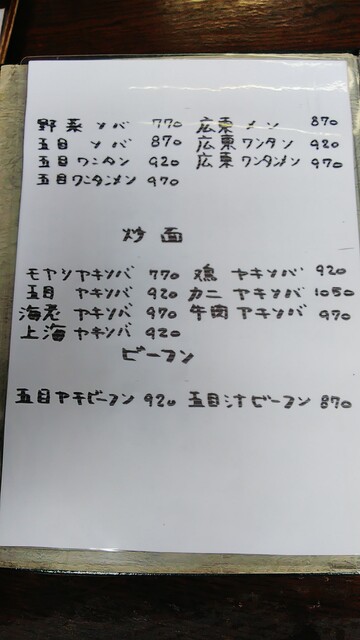 野菜 ソバ 770 広東メン 870
五目 ソバ 870 広東ワンタン 920
五目ワンタン 920 広東ワンタンメン 970
五目ワンタンメン 970
炒面
モヤシヤキソバ 770 鶏 ヤキソバ 920
五目 ヤキソバ 920 カニ ヤキソバ 1050
海老 ヤキソバ 970 牛肉ヤキソバ 970
上海 ヤキソバ 920
ビーフン
五目ヤキビーフン 920 五目汁ビーフン 870